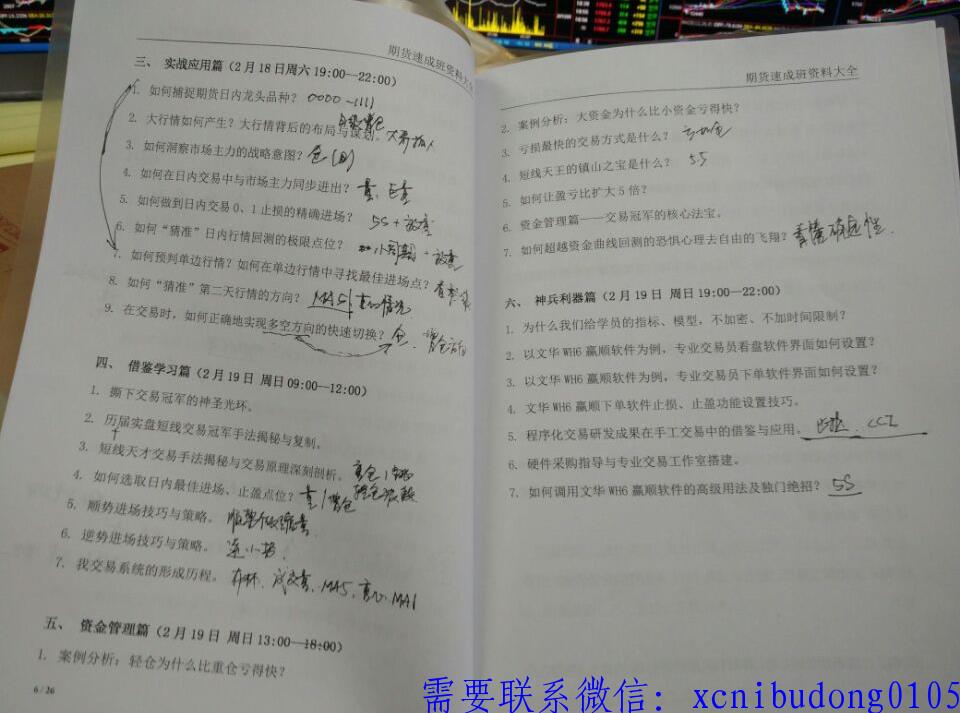 期货速成班资料大全
三、 实战应用篇（2月18日周六19:00—22:00）
1. 如何捕捉期货日内龙头品种？ 0000-1111
2. 大行情如何产生？大行情背后的布局与谋划。
3. 如何洞察市场主力的战略意图？ 仓
4. 如何在日内交易中与市场主力同步进出？ 量、
5. 如何做到日内交易0、1止损的精确进场？ 5S+放量
6. 如何“猜准”日内行情回测的极限点位？ 小周期+放量
7. 如何预判单边行情？如何在单边行情中寻找最佳进场点？
8. 如何“猜准”第二天行情的方向？ MA5
9. 在交易时，如何正确地实现多空方向的快速切换？ 仓、
四、 借鉴学习篇（2月19日 周日09:00—12:00）
1. 撕下交易冠军的神圣光环。
2. 历届实盘短线交易冠军手法揭秘与复制。
3. 短线天才交易手法揭秘与交易原理深刻剖析。
4. 如何选取日内最佳进场、止盈点位？ 量/
5. 顺势进场技巧与策略。
6. 逆势进场技巧与策略。
7. 我交易系统的形成历程。 布林、成交量、MA5、 MA1
五、 资金管理篇（2月19日 周日13:00—18:00）
1. 案例分析：轻仓为什么比重仓亏得快？
6 / 26
期货速成班资料大全
2. 案例分析：大资金为什么比小资金亏得快？
3. 亏损最快的交易方式是什么？
4. 短线天王的镇山之宝是什么？ 5S
5. 如何让盈亏比扩大5倍？
6. 资金管理篇——交易冠军的核心法宝。
7. 如何超越资金曲线回测的恐惧心理去自由的飞翔？ 确定性.
六、 神兵利器篇（2月19日 周日19:00—22:00）
1. 为什么我们给学员的指标、模型，不加密、不加时间限制？
2. 以文华WH6赢顺软件为例，专业交易员看盘软件界面如何设置？
3. 以文华WH6赢顺软件为例，专业交易员下单软件界面如何设置？
4. 文华WH6赢顺下单软件止损、止盈功能设置技巧。
5. 程序化交易研发成果在手工交易中的借鉴与应用。 CCI
6. 硬件采购指导与专业交易工作室搭建。
7. 如何调用文华WH6赢顺软件的高级用法及独门绝招？ 5S
需要联系微信：xcnibudong0105